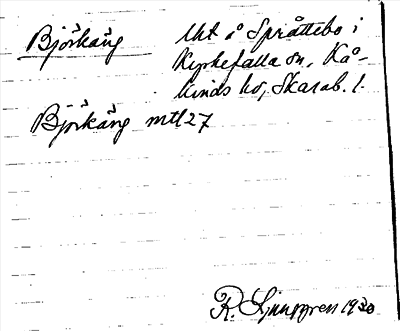 Björkäng
Uht å Språttebo i
Kyrkefalla sn, Kå-
kinds hd, Skarab. l.
Björkäng mtl 27
R. Ljunggren 1930